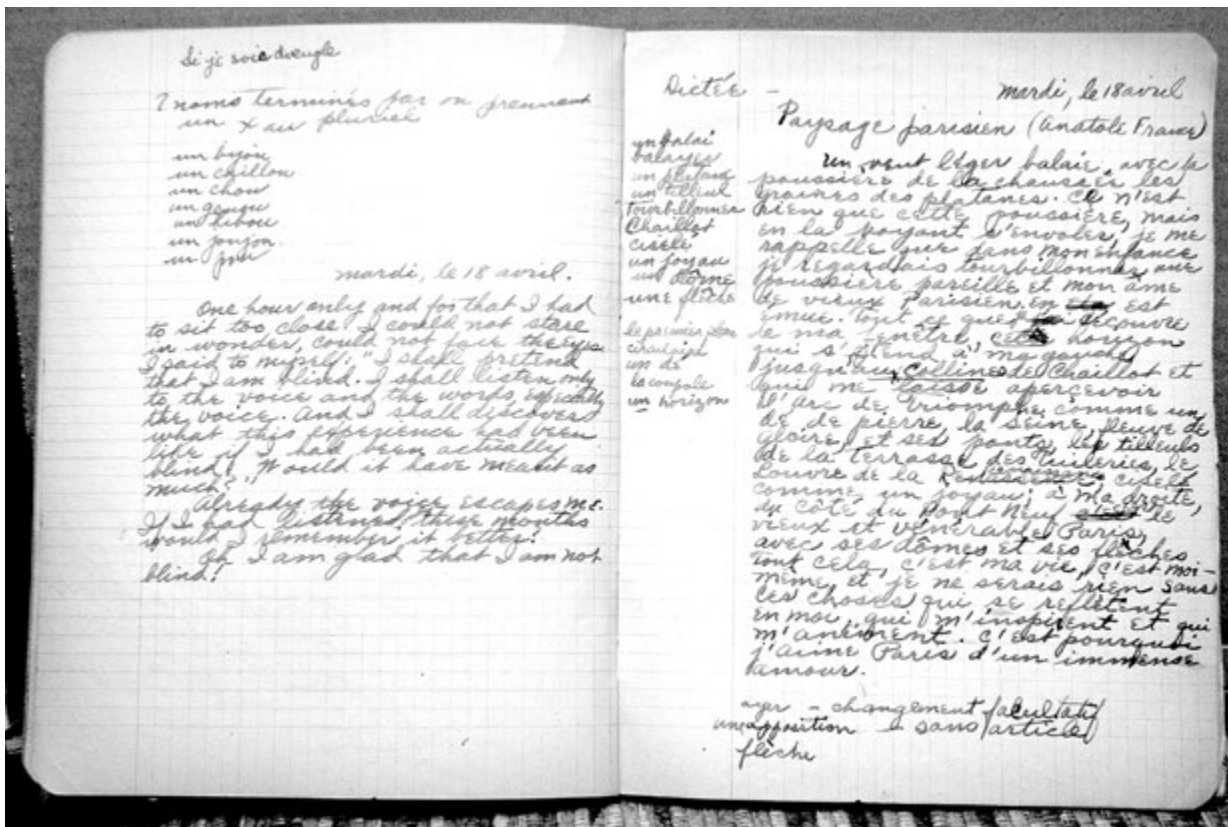 Si je sois aveugle
7 noms terminés par ou prennent
un x au pluriel
un bijou
un caillou
un chou
un genou
un hibou
un joujou
un pou
mardi, le 18 avril.
One hour only and for that I had
to sit too close. I could not stare
in wonder, could not face the eyes.
I said to myself: "I shall pretend
that I am blind. I shall listen only
to the voice and the words, especially
the voice. And I shall discover
what this experience had been
like if I had been actually
blind." Would it have meant as
much?"
Already the voice escapes me.
If I had listened, these months
would I remember it better?
Oh I am glad that I am not
blind!
Dictée -
mardi, le 18 avril
Paysage parisien (Anatole France)
un balai
balayer
un platane
un tilleul
tourbillonner
Chaillot
ciselé
un joyau
un dôme
une flèche
le premier plan
un dé
la coupole
un horizon
Un vent léger balaie, avec la
poussière de la chaussée les
graines des platanes. Ce n'est
rien que cette poussière, mais
en la voyant s'envoler, je me
rappelle que dans mon enfance
je regardais tourbillonner une
poussière pareille et mon âme
de vieux Parisien en est
émue. Tout ce que je découvre
de ma fenêtre, cet horizon
qui s'étend à ma gauche
jusqu'au collines de Chaillot et
qui me laisse apercevoir
l'Arc de Triomphe comme un
dé de pierre, la Seine, fleuve de
gloire, et ses ponts, les tilleuls
de la terrasse des Tuileries, le
Louvre de la Renaissance ciselé
comme un joyau; à ma droite,
du côté du Pont Neuf le
vieux et vénérable Paris,
avec ses dômes et ses flèches
tout cela, c'est ma vie, c'est moi-
même, et je ne serais rien sans
ces choses qui se reflètent
en moi, qui m'inspirent et qui
m'animent. C'est pourquoi
j'aime Paris d'un immense
amour.
ayer - changement facultatif
une apposition - sans article
flèche